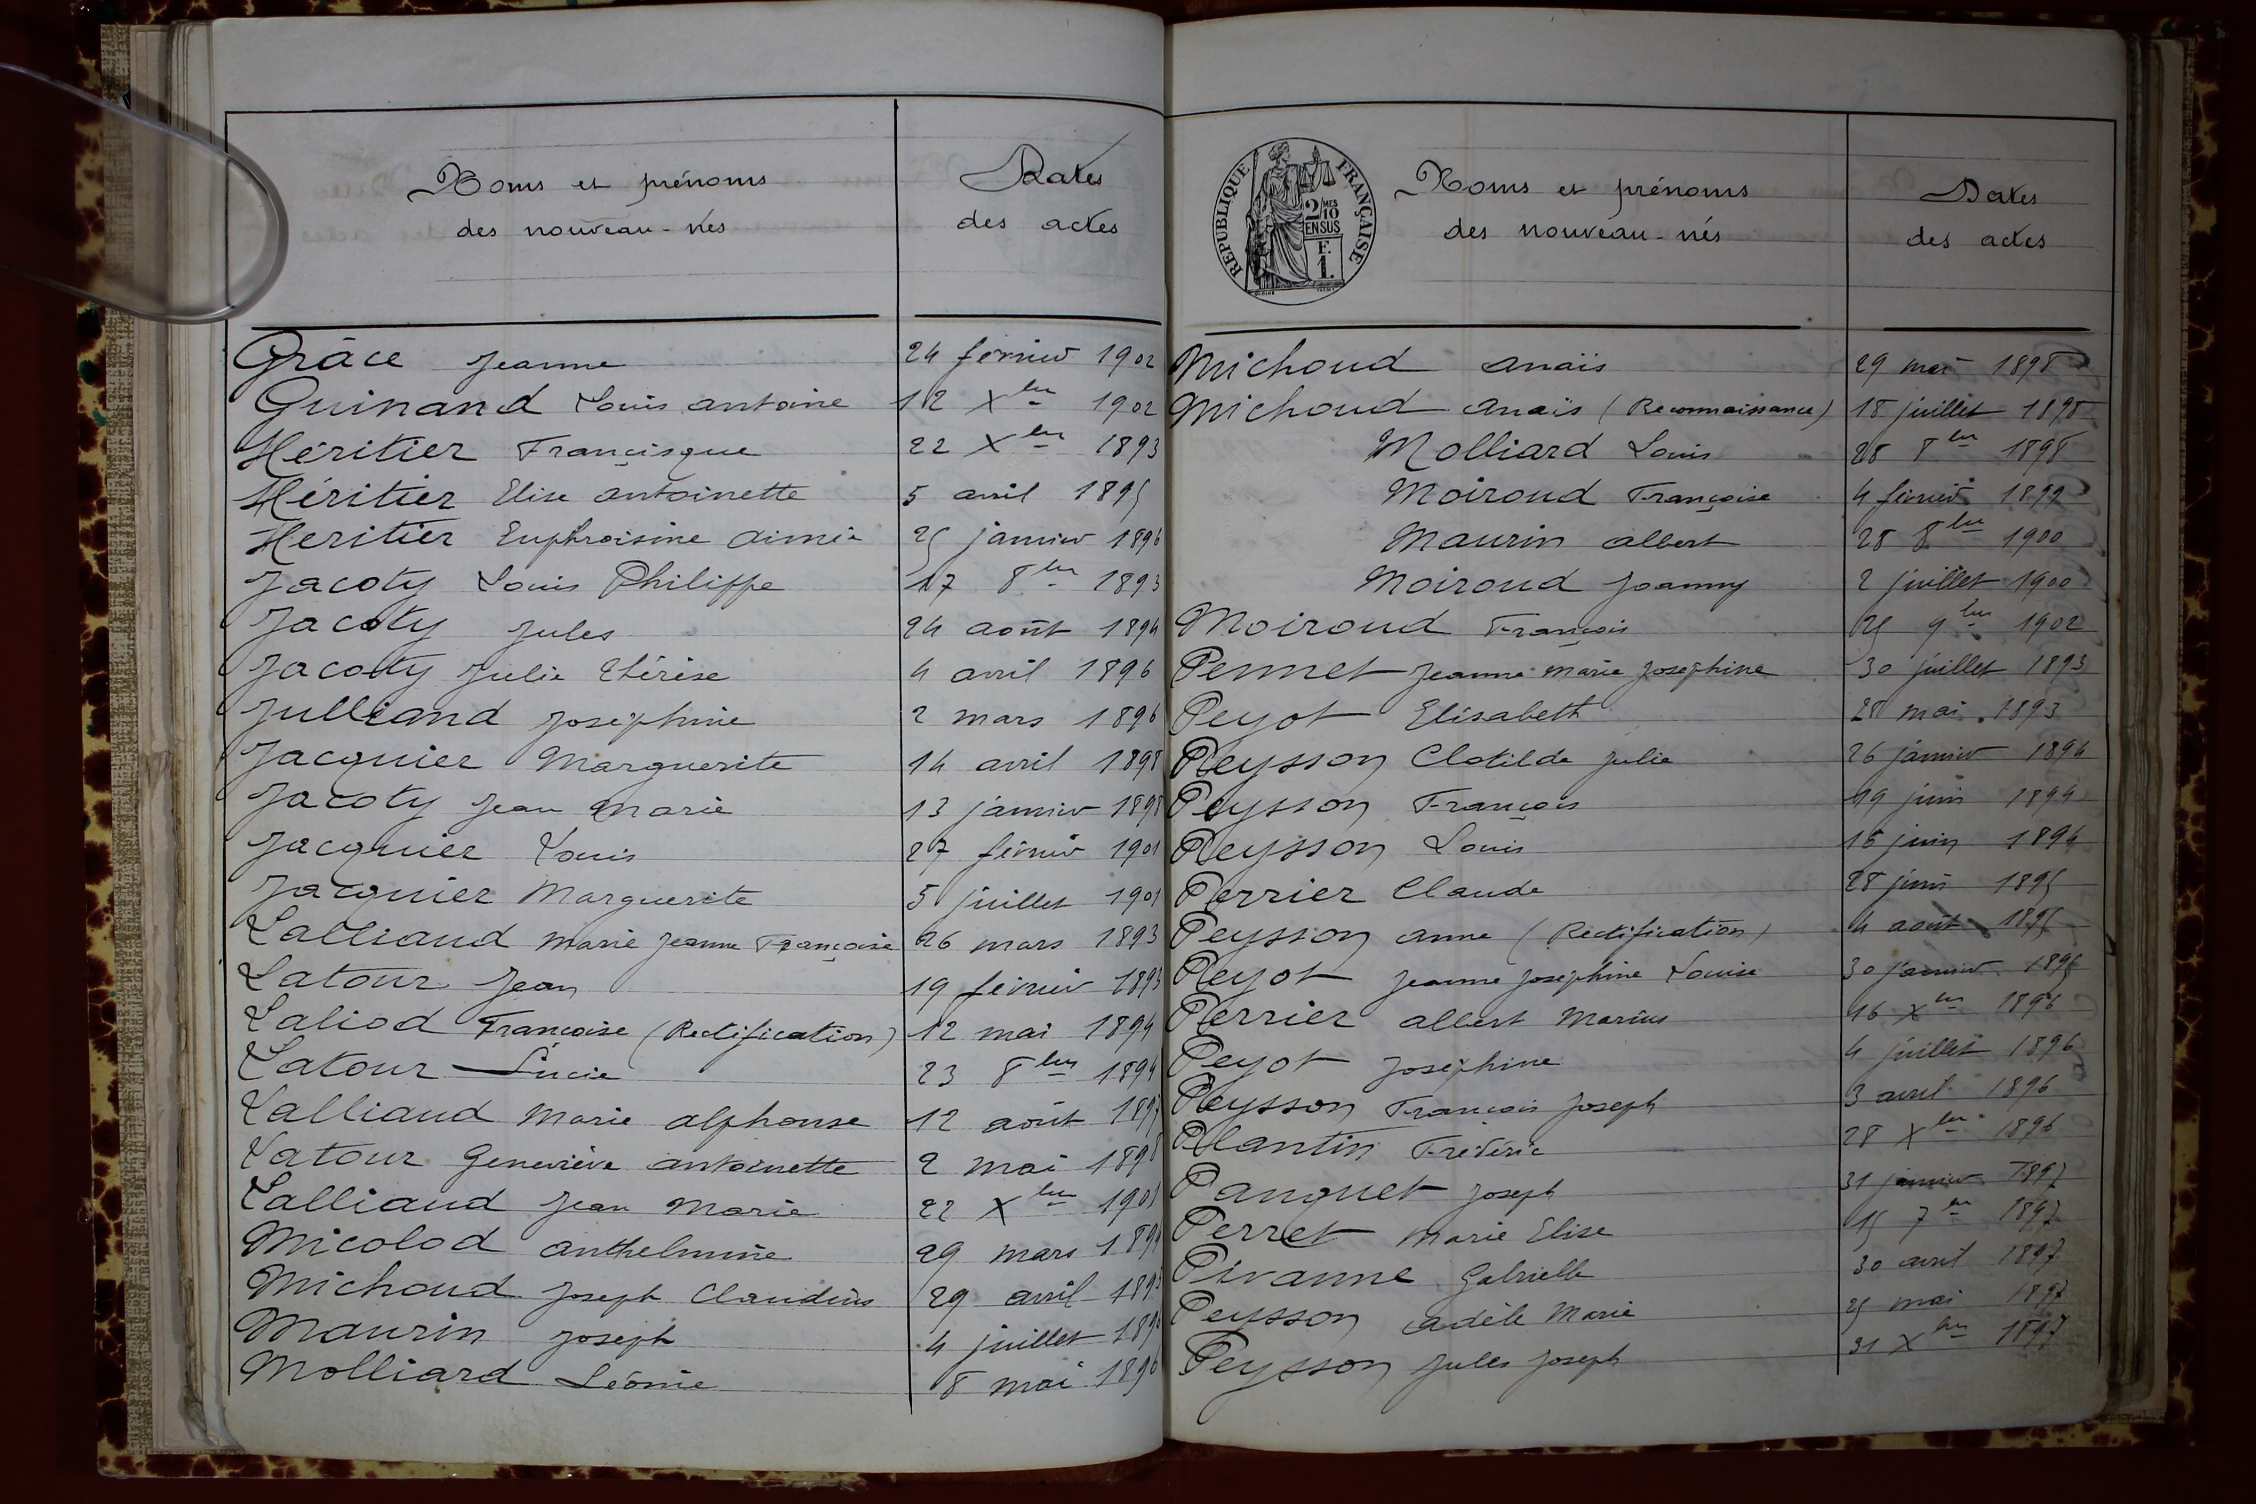 Noms et prénoms
des nouveau-nés
Dates
des actes
Grâce Jeanne 24 février 1902
Guinand Louis Antoine 12 Xbre 1902
Héritier Françisque 22 Xbre 1893
Héritier Elise Antoinette 5 avril 1895
Heritier Euphroisine Aimée 25 janvier 1896
Jacoty Louis Philippe 17 8bre 1893
Jacoty Jules 24 août 1894
Jacoty Julie Thérèse 4 avril 1896
Julliand Joséphine 2 mars 1896
Jacquier Marguerite 14 avril 1898
Jacoty Jean Marie 13 janvier 1898
Jacquier Louis 27 février 1901
Jacquier Marguerite 5 juillet 1901
Lalliaud Marie Jeanne Françoise 26 mars 1893
Latour Jean 19 février
Laliod Francoise (Rectification) 12 mai 1894
Latour Lucie 23 8bre 1894
Lalliaud Marie Alphonse 12 août
Latour Geneviève Antoinette 2 mai 1898
Lalliaud Jean Marie 22 Xbre 1901
Micolod Anthelmine 29 mars
Michoud Joseph Claudius 29 avril
Maurin Joseph 4 juillet
Molliard Léonie 8 mai 1896
RÉPUBLIQUE FRANÇAISE
2/10 MES
EN SUS
F.
1.
Noms et prénoms
des nouveau-nés
Dates
des actes
Michoud Anaïs 29 mai 1898
Michoud Anaïs (Reconnaissance) 18 juillet 1898
Molliard Louis 28 8bre 1898
Moiroud Françoise 4 février 1899
Maurin Albert 28 8bre 1900
Moiroud Joanny 2 juillet 1900
Moiroud François 25 9bre 1902
Pennet Jeanne Marie Joséphine 30 juillet 1893
Peyot Elisabeth 28 mai 1893
Peysson Clotilde Julie 26 janvier 1894
Peysson François 19 juin 1894
Peysson Louis juin 1894
Perrier Claude 28 juin 1895
Peysson Anne (Rectification) 4 août 1895
Peyot Jeanne Joséphine Louise 30 janvier 1895
Perrier Albert Marius 16 Xbre 1896
Peyot Joséphine 4 juillet 1896
Peysson François Joseph 3 avril 1896
Plantin Frédéric 28 Xbre 1896
Panguet Joseph 31 janvier 1897
Perret Marie Elise 15 7bre 1897
Pivanne Gabrielle 30 avril 1897
Peysson Adèle Marie 25 mai 1897
Peysson Jules Joseph 31 Xbre 1897